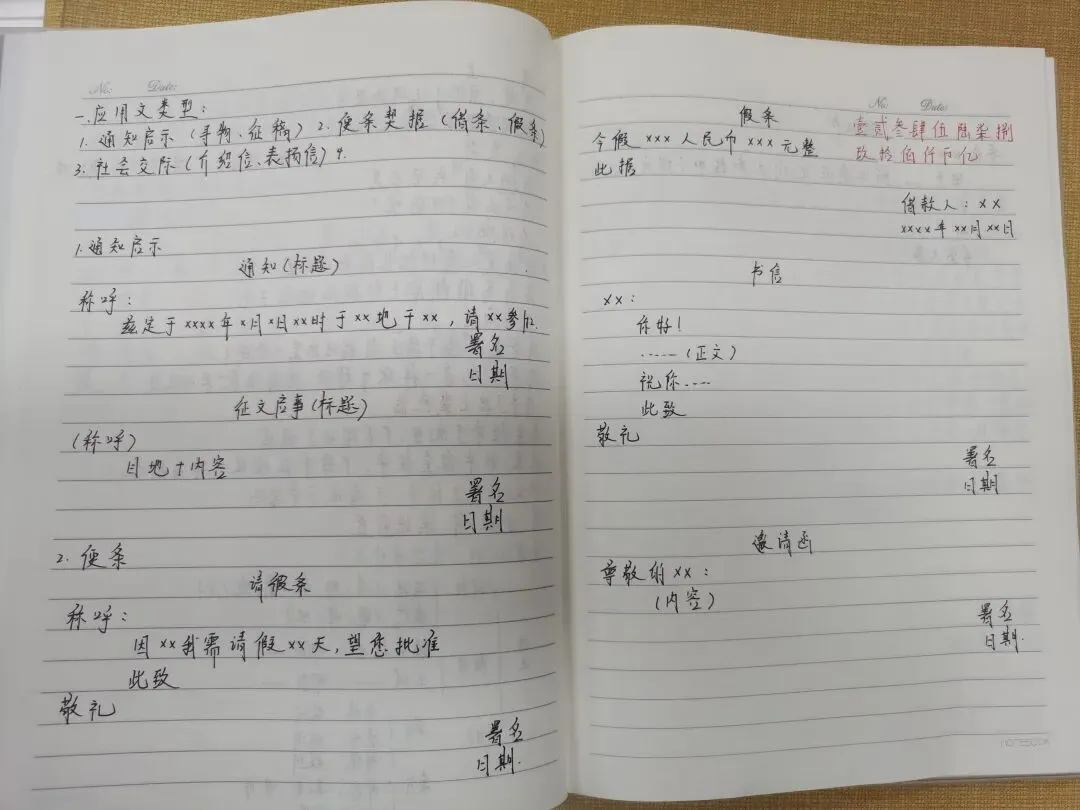 No: Date:
一、应用文类型：
1. 通知启示（寻物、征稿）2. 便条契据（借条、假条）
3. 社会交际（介绍信、表扬信）4.
1.通知启示
通知（标题）
称呼：
兹定于xxxx年x月x日xx时于xx地干xx，请xx参加.
署名
日期
征文启事（标题）
（称呼）
目地＋内容
署名
日期
2. 便条
请假条
称呼：
因xx我需请假xx天，望您批准
此致
敬礼
署名
日期.
No: Date:
假条
壹贰叁肆伍陆柒捌
玖拾佰仟币亿
今假xxx人民币xxx元整
此据
借款人：xx
xxxx年xx月xx日
书信
xx：
你好！
……（正文）
祝你....
此致
敬礼
署名
日期
邀请函
尊敬的xx：
（内容）
署名
日期.
NOTEBOOK